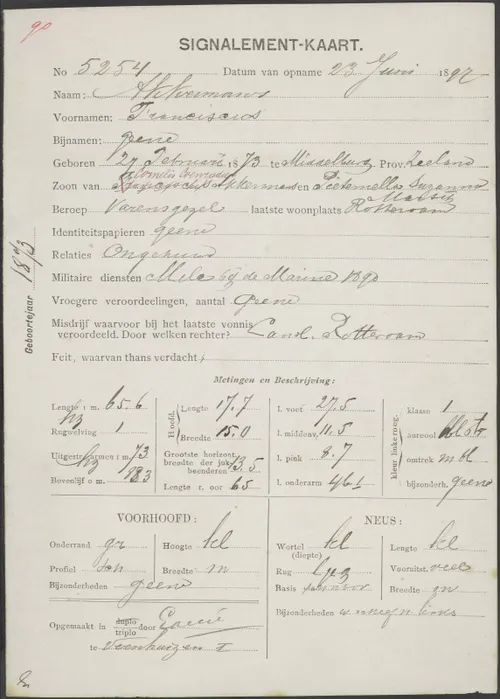 90
SIGNALEMENT-KAART.
No 5254 Datum van opname 23 Juni 1897
Naam: Akkermans
Voornamen: Franciscus
Bijnamen: geene
Geboren 27 Februari 1873 te Middelburg Prov. Zeeland
Cornelis
Zoon van Akkermans en Pieternella Suzanna
Beroep Varensgezel laatste woonplaats Rotterdam
Identiteitspapieren geene
Relaties Ongehuwd
Militaire diensten bij de Marine 1890
Vroegere veroordeelingen, aantal geene
Misdrijf waarvoor bij het laatste vonnis
veroordeeld. Door welken rechter? Rotterdam
Feit, waarvan thans verdacht;
Geboortejaar 1873
Metingen en Beschrijving:
Lengte 1 m. 65.6
Rugwelving 1
Uitgestr. armen 1 m. 73
Bovenlijf o m.
Hoofd. Lengte 17.7
Breedte 15.0
Grootste horizont. breedte der juk- beenderen 13.5
Lengte r. oor 6.5
l. voet 27.5
l. middenv. 11.5
l. pink 8.7
l. onderarm 46.1
kleur linkeroog. klasse 1
aureool
omtrek
bijzonderh. geene
VOORHOOFD:
Onderrand gr Hoogte kl
Profiel Breedte m
Bijzonderheden geene
NEUS:
Wortel (diepte) kl Lengte kl
Rug Vooruitst. veel
Basis Breedte
Bijzonderheden
Opgemaakt in duplo triplo door
te Veenhuizen I